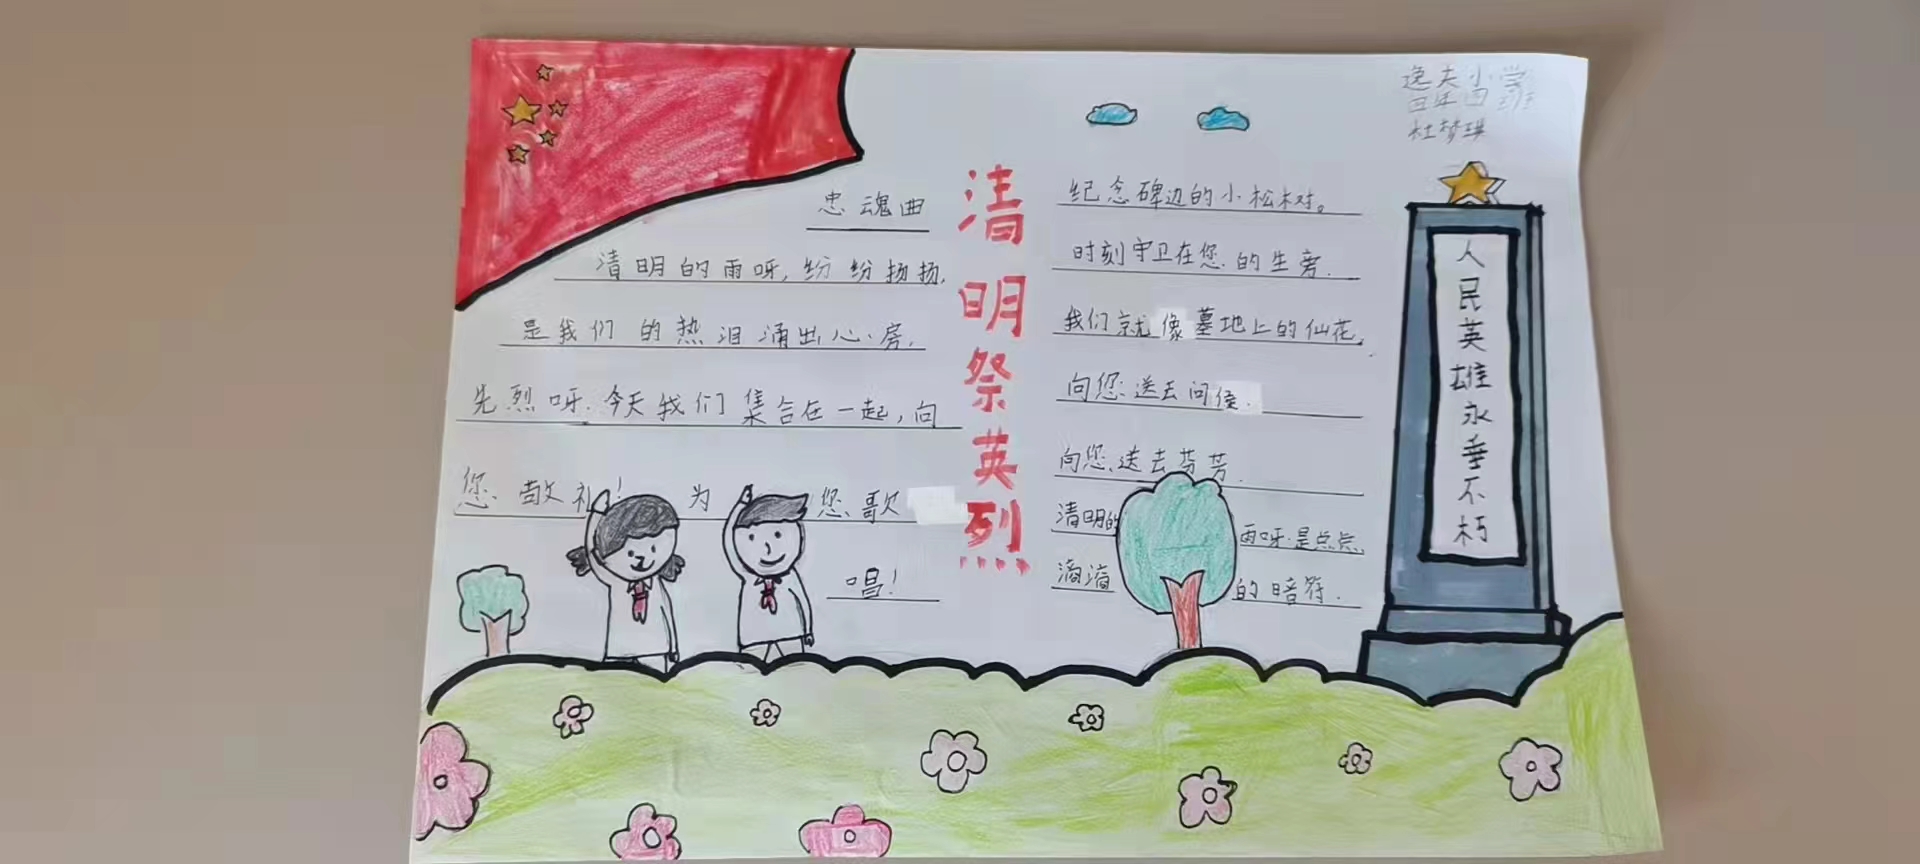 逸夫小学
四年四班
杜梦琪
忠魂曲
清明的雨呀,纷纷扬扬,
是我们的热泪涌出心房,
先烈呀.今天我们集合在一起,向
您敬礼!为您歌
唱!
清明祭英烈
纪念碑边的小松树。
时刻守卫在您的生旁.
我们就像墓地上的仙花,
向您送去问侯.
向您送去芬芳.
清明的雨呀.是点点
滴滴的暗符.
人民英雄永垂不朽